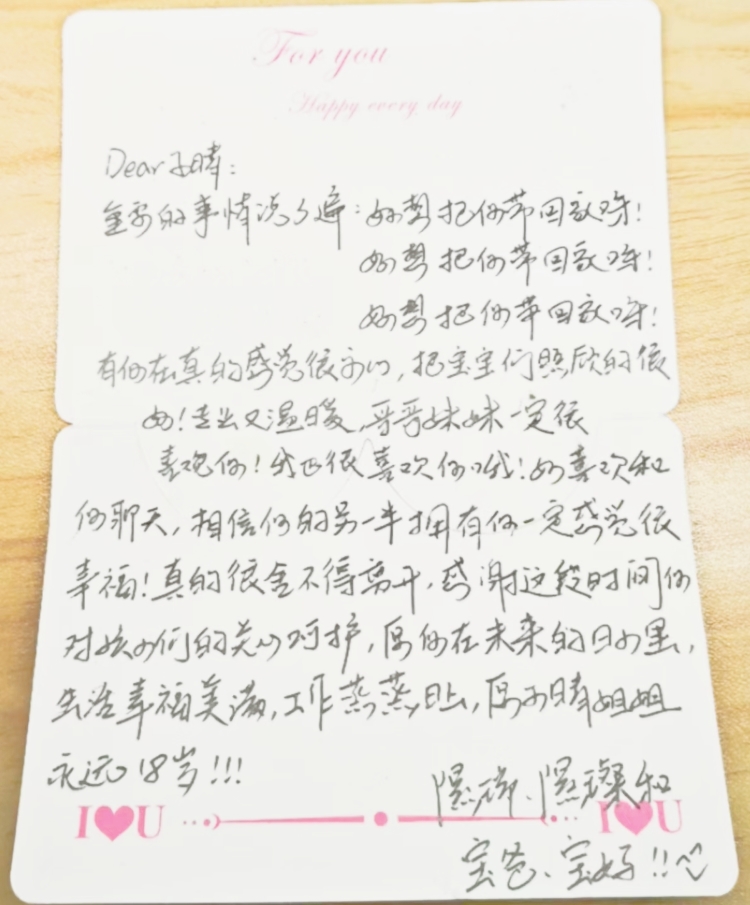 For you
Happy every day
Dear子晴:
重要的事情说3遍:好想把你带回家呀!
好想把你带回家呀!
好想把你带回家呀!
有你在真的感觉很安心,把宝宝们照顾的很
好!专业又温暖,哥哥妹妹一定很
喜欢你!我也很喜欢你哦!好喜欢和
你聊天,相信你的另一半拥有你一定感觉很
幸福!真的很舍不得离开,感谢这段时间你
对孩子们的关心呵护,愿你在未来的日子里,
生活幸福美满,工作蒸蒸日上,愿子晴姐姐
永远18岁!!!
I U I U
宝爸、宝妈!!